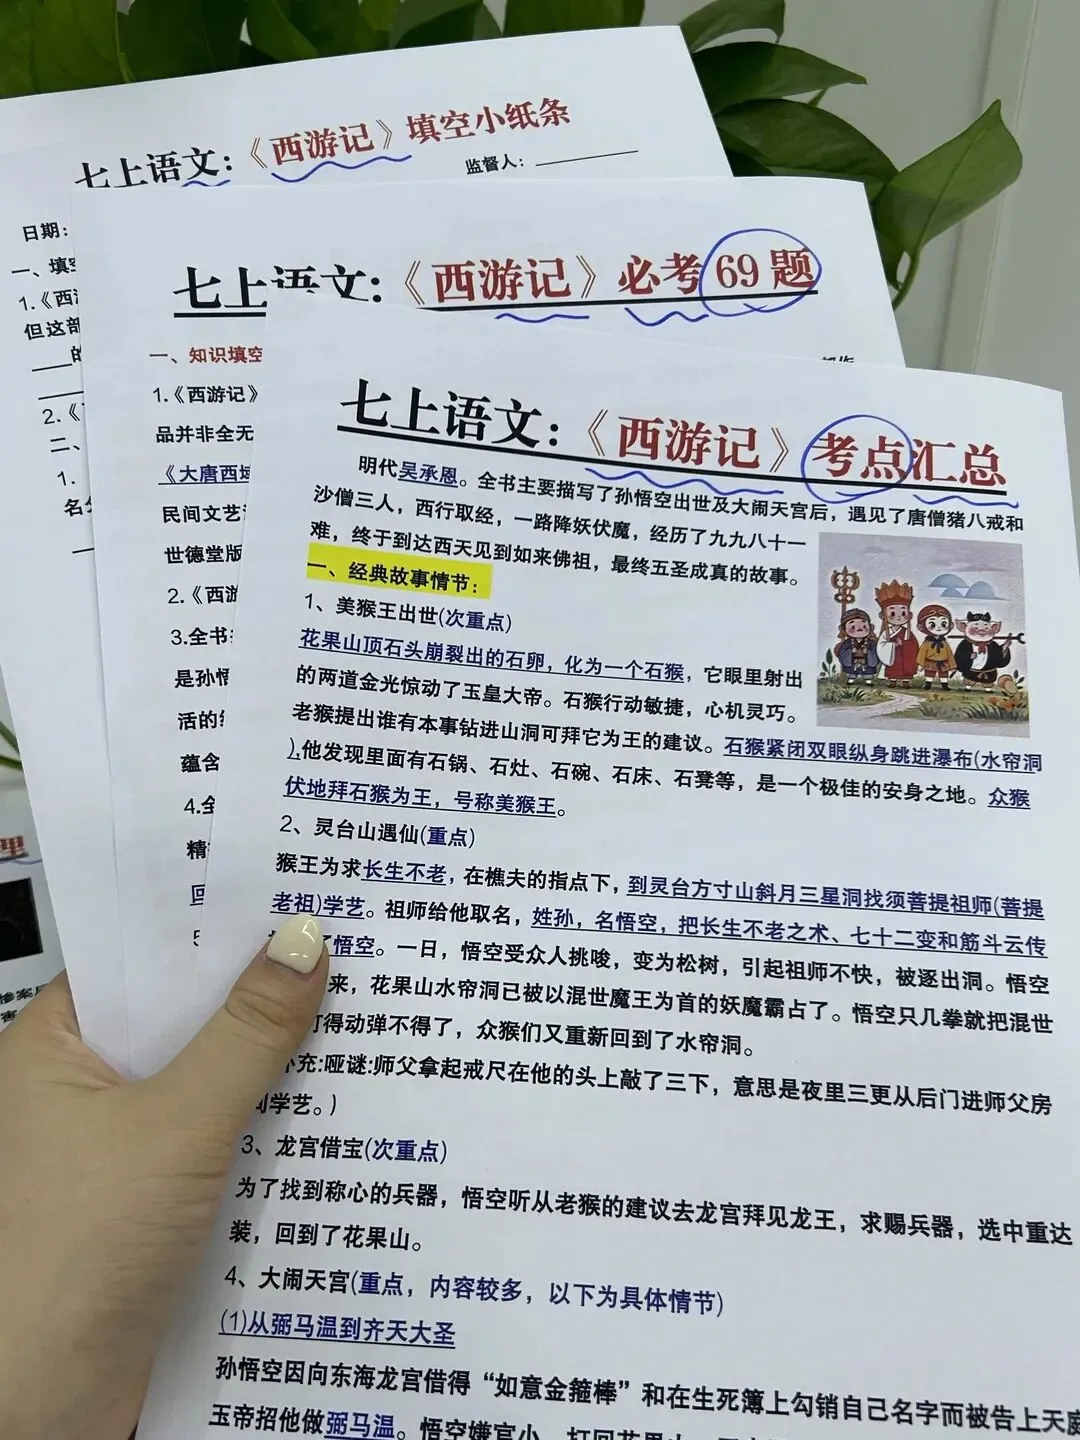 七上语文:《西游记》填空小纸条
监督人:
日期:
一、填空
1.《西游
但这部
的
2.《
二、
1.
七上语文:《西游记》必考69题
一、知识填空
1.《西游记》
品并非全无
《大唐西域
民间文艺
世德堂版
2.《西游
3.全书
是孙悟
活的
蕴含
4.全
精
回
5
七上语文:《西游记》考点汇总
明代吴承恩。全书主要描写了孙悟空出世及大闹天宫后，遇见了唐僧猪八戒和
沙僧三人，西行取经，一路降妖伏魔，经历了九九八十一
难，终于到达西天见到如来佛祖，最终五圣成真的故事。
一、经典故事情节:
1、美猴王出世(次重点)
花果山顶石头崩裂出的石卵，化为一个石猴，它眼里射出
的两道金光惊动了玉皇大帝。石猴行动敏捷，心机灵巧。
老猴提出谁有本事钻进山洞可拜它为王的建议。石猴紧闭双眼纵身跳进瀑布(水帘洞
),他发现里面有石锅、石灶、石碗、石床、石凳等，是一个极佳的安身之地。众猴
伏地拜石猴为王，号称美猴王。
2、灵台山遇仙(重点)
猴王为求长生不老，在樵夫的指点下，到灵台方寸山斜月三星洞找须菩提祖师(菩提
老祖)学艺。祖师给他取名，姓孙，名悟空，把长生不老之术、七十二变和筋斗云传
了悟空。一日，悟空受众人挑唆，变为松树，引起祖师不快，被逐出洞。悟空
来，花果山水帘洞已被以混世魔王为首的妖魔霸占了。悟空只几拳就把混世
打得动弹不得了，众猴们又重新回到了水帘洞。
补充:哑谜:师父拿起戒尺在他的头上敲了三下，意思是夜里三更从后门进师父房
间学艺。)
3、龙宫借宝(次重点)
为了找到称心的兵器，悟空听从老猴的建议去龙宫拜见龙王，求赐兵器，选中重达
装，回到了花果山。
4、大闹天宫(重点，内容较多，以下为具体情节)
(1)从弼马温到齐天大圣
孙悟空因向东海龙宫借得“如意金箍棒”和在生死簿上勾销自己名字而被告上天庭
玉帝招他做弼马温。悟空嫌官小，打回花果山
理
惨案
害